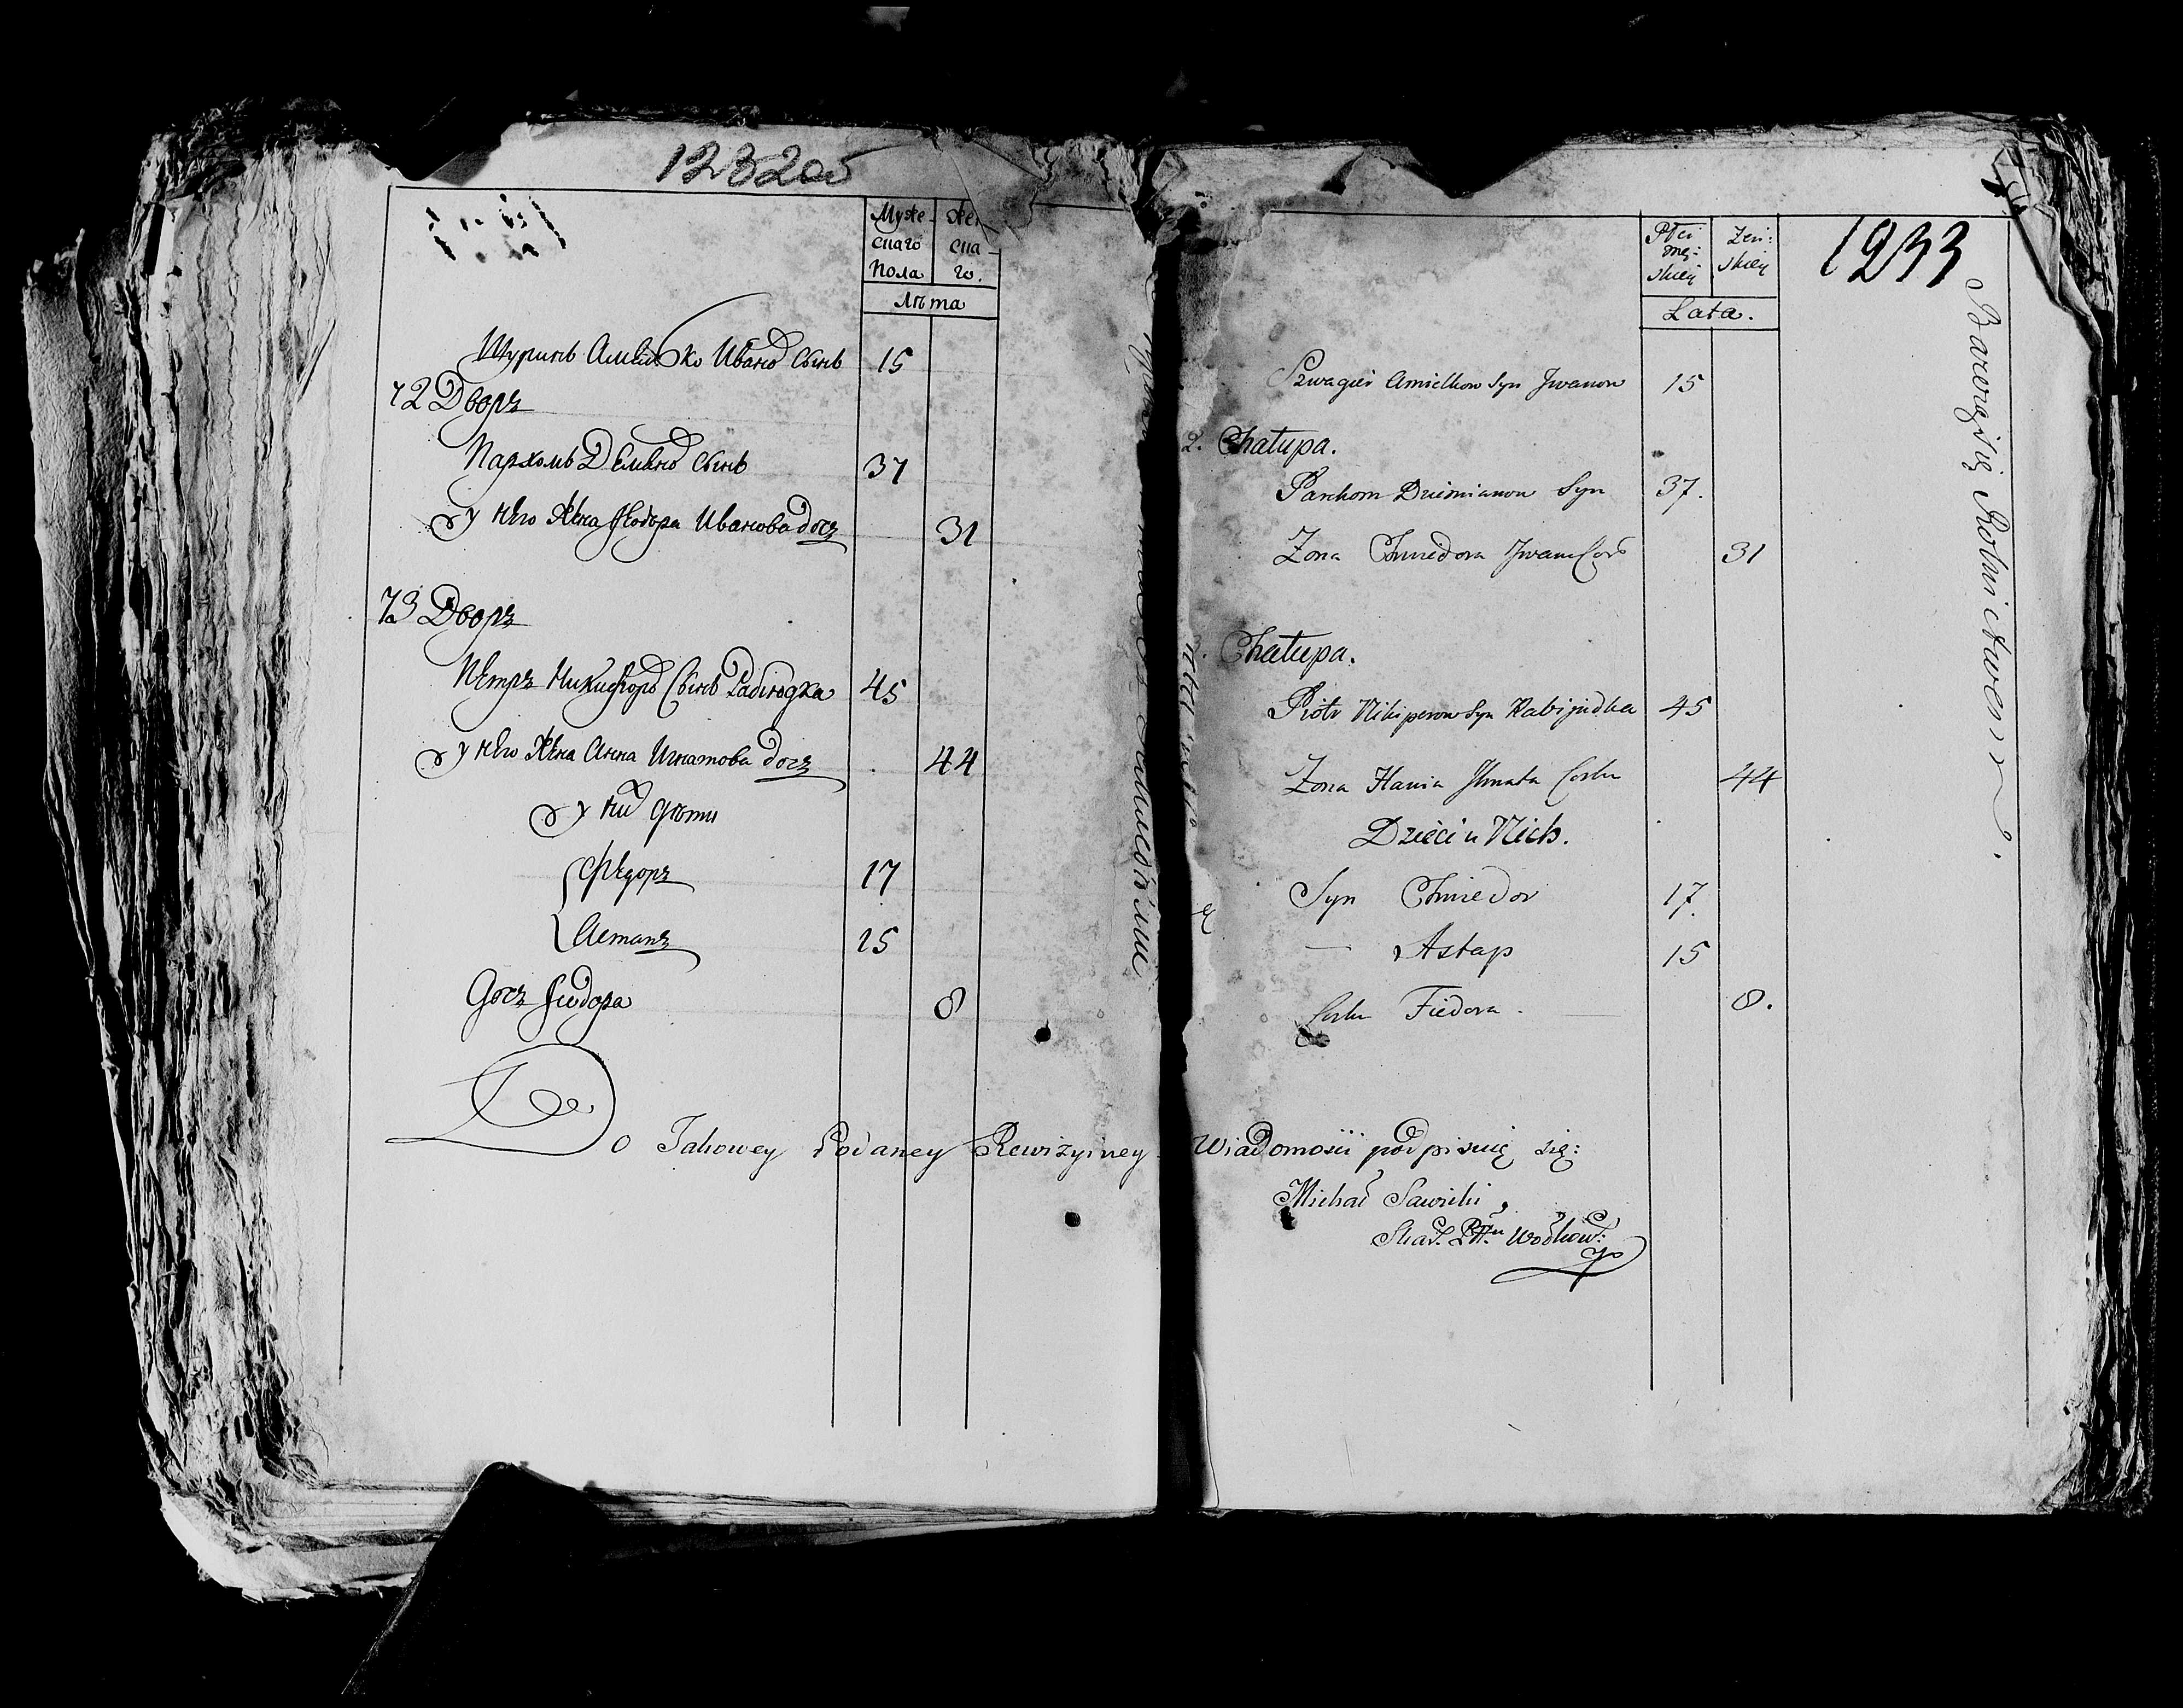 1232об
Муже- Жен
скаго ска-
пола го.
Лѣта
Шуринъ Амелько Иванов Сынъ 15
72 Дворъ
Пархомъ Демянов Сынъ 37
у него Жена Феодора Иванова дочъ 31
73 Дворъ
Петръ Никифоров Сынъ Рабіюдка 45
у него Жена Анна Игнатова дочъ 44
у них дѣти
Федоръ 17
Астапъ 15
дочъ Феодора 8
1233
Płci Żeń:
męz: skiey
skiey
Lata.
Baweią się Rolnictwem.
Szwagier Amielkow Syn Jwanow 15
2. Chałupa.
Parchom Dziemianow Syn 37.
Zona Chwiedora Jwana Cor 31
3. Chałupa.
Piotr Nikiperow Syn Rabijudka 45
Zona Hania Jhnata Corka 44
Dzieci u Nich.
Syn Chwiedor 17.
— Astap 15
Corka Fiedora. 8.
Do Takowey Podaney Rewizyiney Wiadomości podpisuię się:
Michał Sawicki